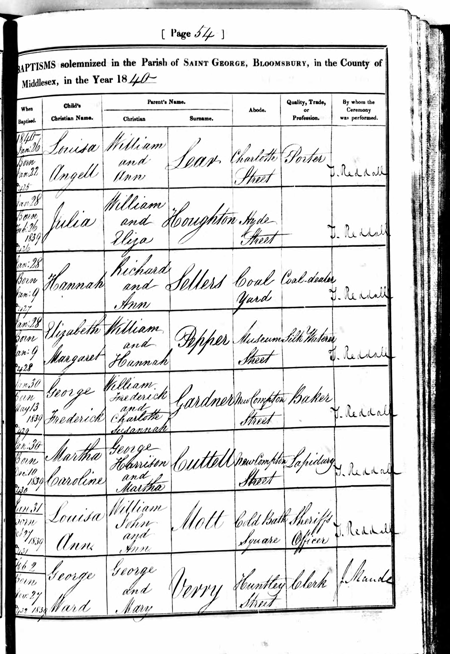 [ Page 54 ]
BAPTISMS solemnized in the Parish of SAINT GEORGE, BLOOMSBURY, in the County of
Middlesex, in the Year 1840
When Baptised. Child's Christian Name. Parent's Name. Christian Surname. Abode. Quality, Trade, or Profession. By whom the Ceremony was performed.
1840
Jan: 26 Louisa William Porter
Born and Leav Charlotte
Jan: 22 Angell Ann Street T. Reddall
Jan: 28 William
Born Julia and Houghton Hyde
26 1839 Eliza Street T. Reddall
Jan: 28 Richard
Born Hannah and Sellers Coal Coal dealer
Jan: 9 Ann Yard T. Reddall
Jan: 28 Elizabeth William
Born and Pepper Museum Silk
Jan: 9 Margaret Hannah Street T. Reddall
Jan: 30 George William Frederick
Born and Gardner New Compton Baker
13 1839 Frederick Charlotte Susannah Street T. Reddall
Jan: 30 Martha George
Born Harrison Cuttell New Compton Lapidary
10 1839 Caroline and Martha Street T. Reddall
Jan: 31 Louisa William
Born John Mott Cold Bath Sheriff's
27 1839 Ann and Ann Square Officer T. Reddall
Feb 2 George George
Born and Verry Huntley Clerk
27 1839 Ward Mary Street J. Maude